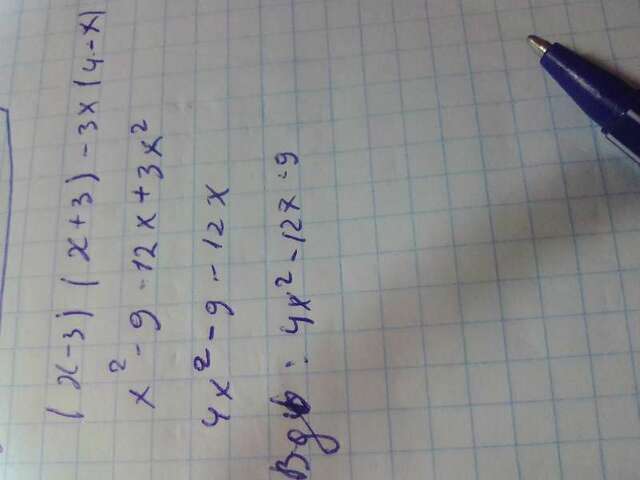 (x-3)(x+3)-3x(4-x)
x²-9-12x+3x²
4x²-9-12x
Відп: 4x²-12x-9